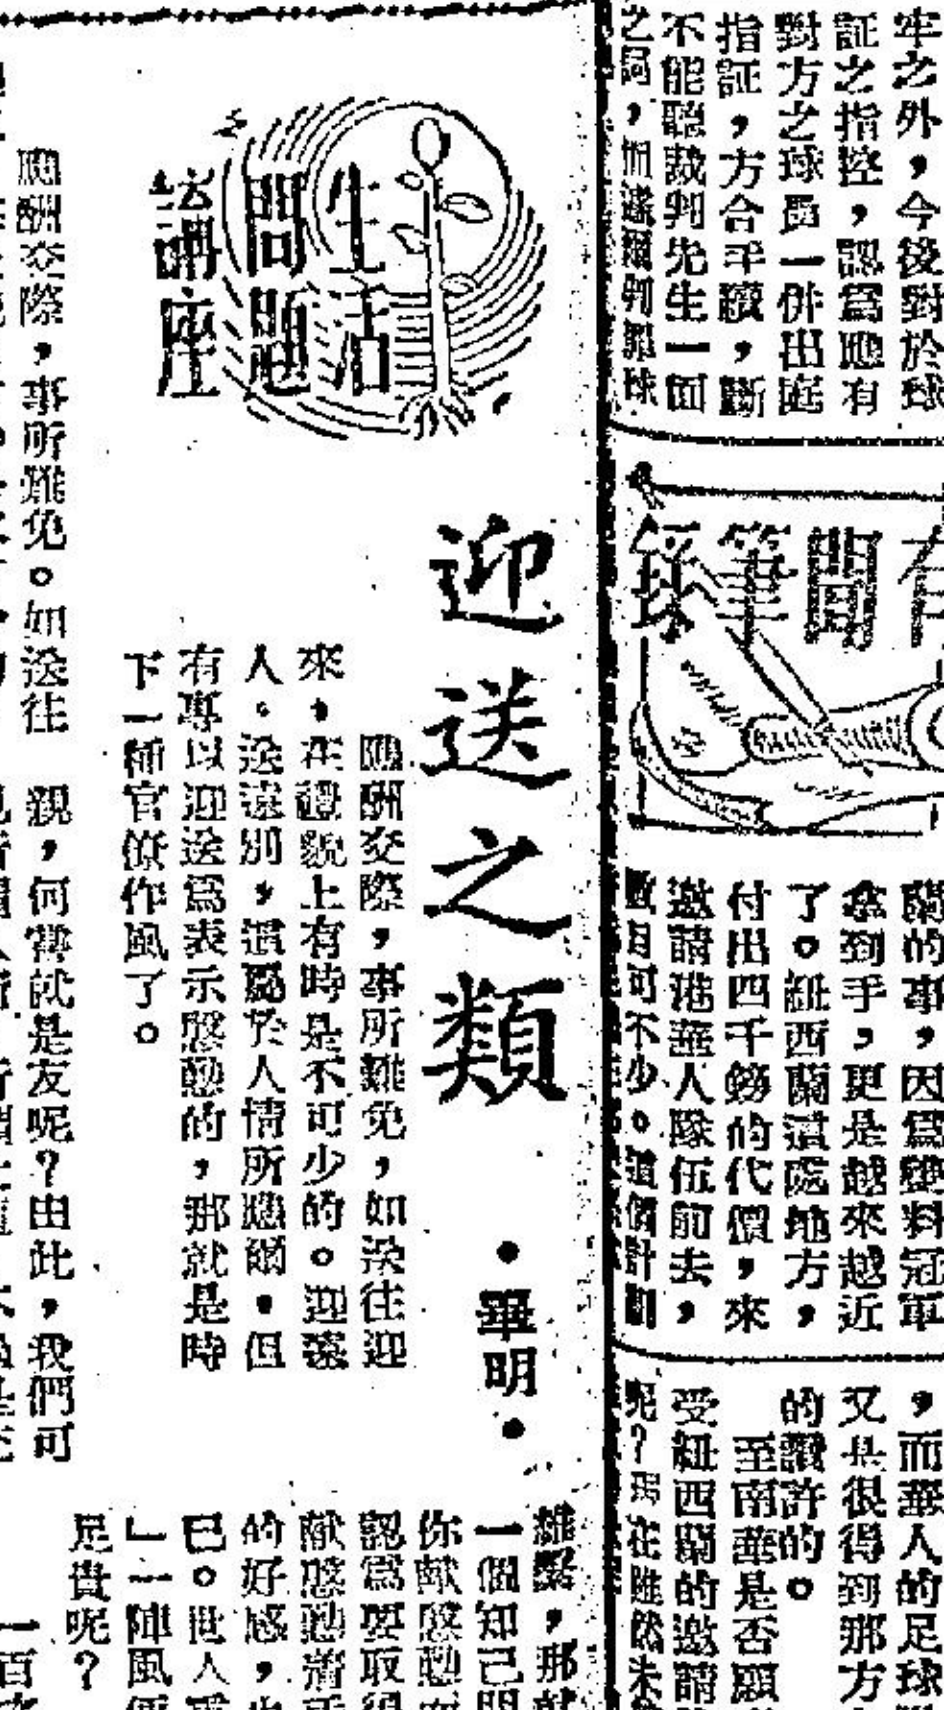 牢之外，今後對於球
証之指控，認爲應有
對方之球員一併出庭
指証，方合手續，斷
不能聽裁判先生一面
之詞，而遂爾判罪球
有閒筆
蘭的事，因爲雙料冠軍
拿到手，更是越來越近
了。紐西蘭這處地方，
付出四千鎊的代價，來
邀請港華人隊伍前去，
數目可不少。這個計劃
，而華人的足球
又是很得到那方
的讚許的。
至南華是否願
受紐西蘭的邀請
呢？現在雖然未
生活
問題
講座
迎送之類
・畢明・
應酬交際，事所難免，如送往迎
來，在禮貌上有時是不可少的。迎遠
人。送遠別，這屬於人情所應爾，但
有專以迎送爲表示慇懃的，那就是時
下一種官僚作風了。
應酬交際，事所難免。如送往
親，何嘗就是友呢？由此，我們可
維繫，那就
一個知己朋
你獻慇懃而
認爲要取得
獻慇懃者
的好感，也
已。世人
」一陣風
足貴呢？
一百